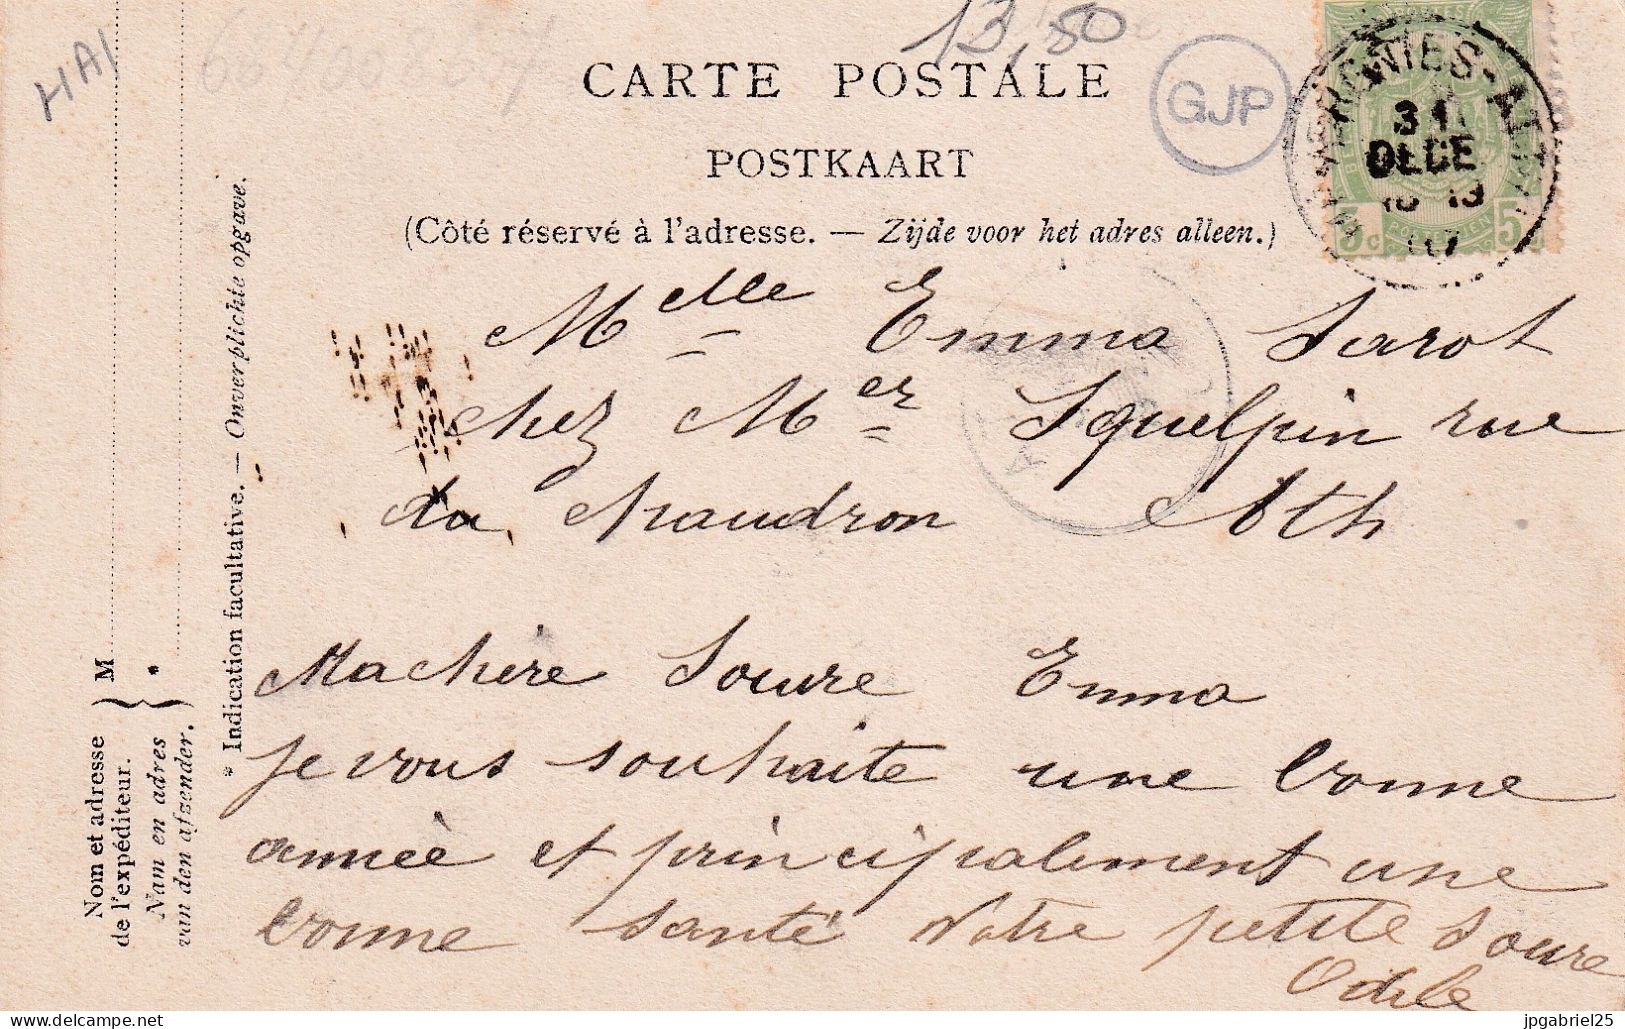 HAI
13,50
CARTE POSTALE
GJP
POSTKAART
(Côté réservé à l'adresse. — Zijde voor het adres alleen.)
31
DECE
07
5c
5
Melle Emma Sarot
chez Mer Squelpin rue
du chaudron Ath
Machère Soeure Emma
je vous souhaite une bonne
anneè et principalement une
bonne santé Votre petite Soeure
Odile
Nom et adresse
de l'expéditeur.
M
Nam en adres
van den afzender.
*
* Indication facultative. — Onverplichte opgave.
delcampe.net
jpgabriel25